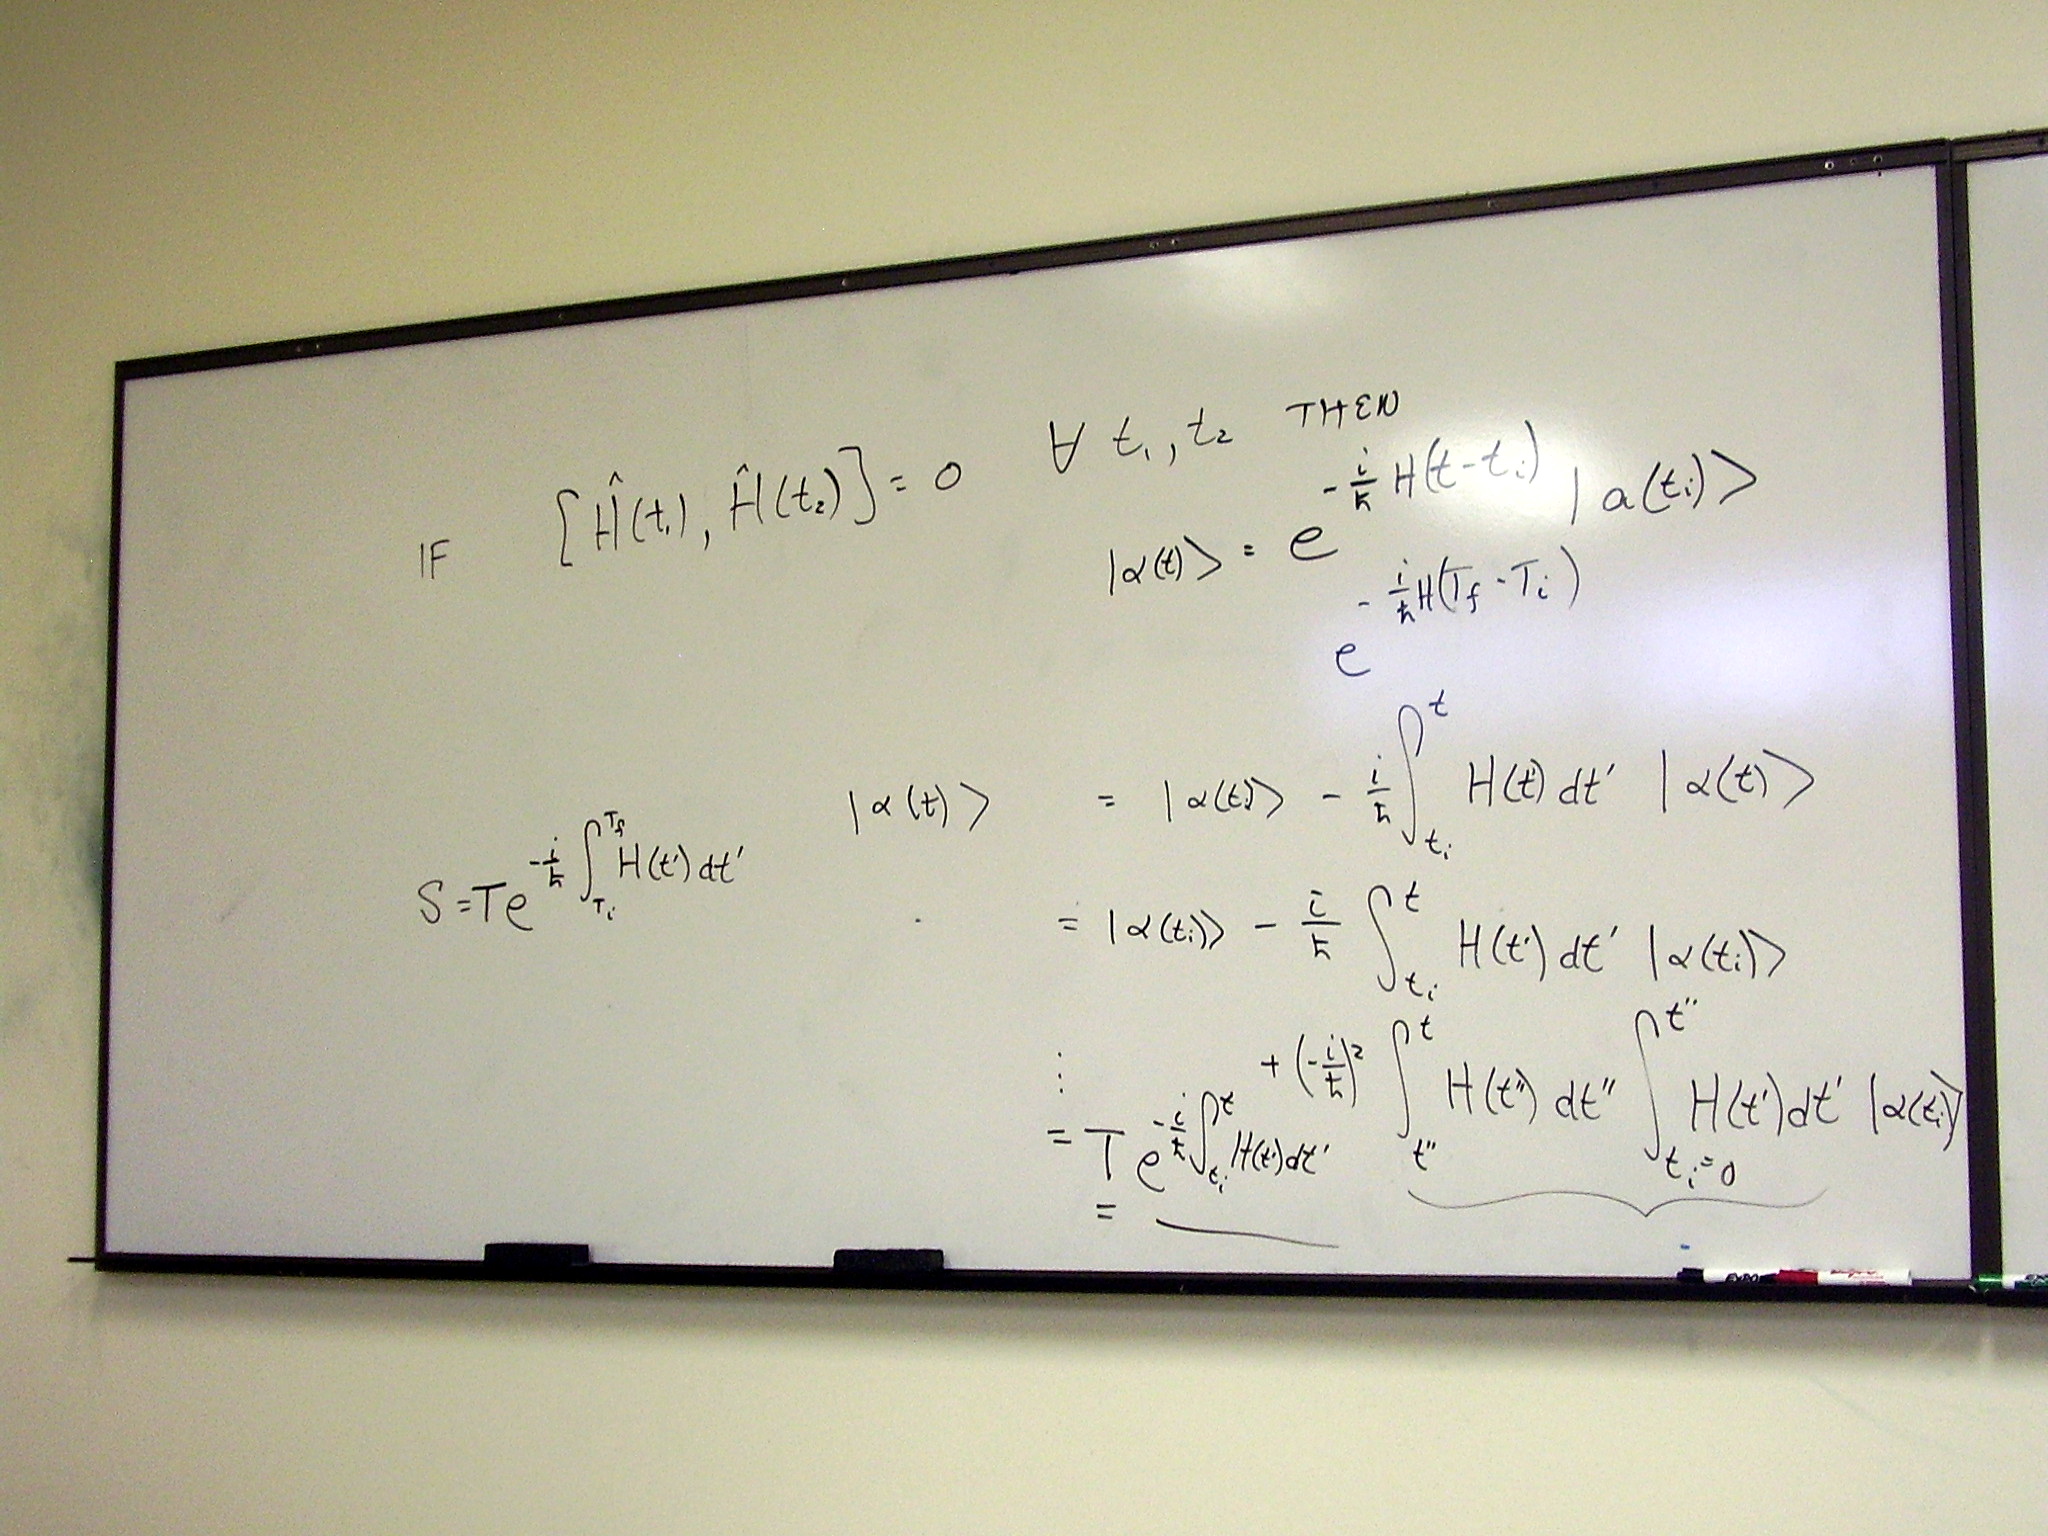 IF [Ĥ(t₁), Ĥ(t₂)] = 0 ∀ t₁, t₂ THEN
|α(t)> = e^{-i/ħ H(t-tᵢ)} |a(tᵢ)>
e^{-i/ħ H(T_f - T_i)}
|α(t)> = |α(tᵢ)> - i/ħ ∫_{tᵢ}^{t} H(t') dt' |α(t)>
S = T e^{-i/ħ ∫_{T_i}^{T_f} H(t') dt'}
= |α(tᵢ)> - i/ħ ∫_{tᵢ}^{t} H(t') dt' |α(tᵢ)>
+ (-i/ħ)² ∫_{t''}^{t} H(t'') dt'' ∫_{tᵢ=0}^{t''} H(t') dt' |α(tᵢ)>
⋮
= T e^{-i/ħ ∫_{tᵢ}^{t} H(t') dt'}
=
EXPO